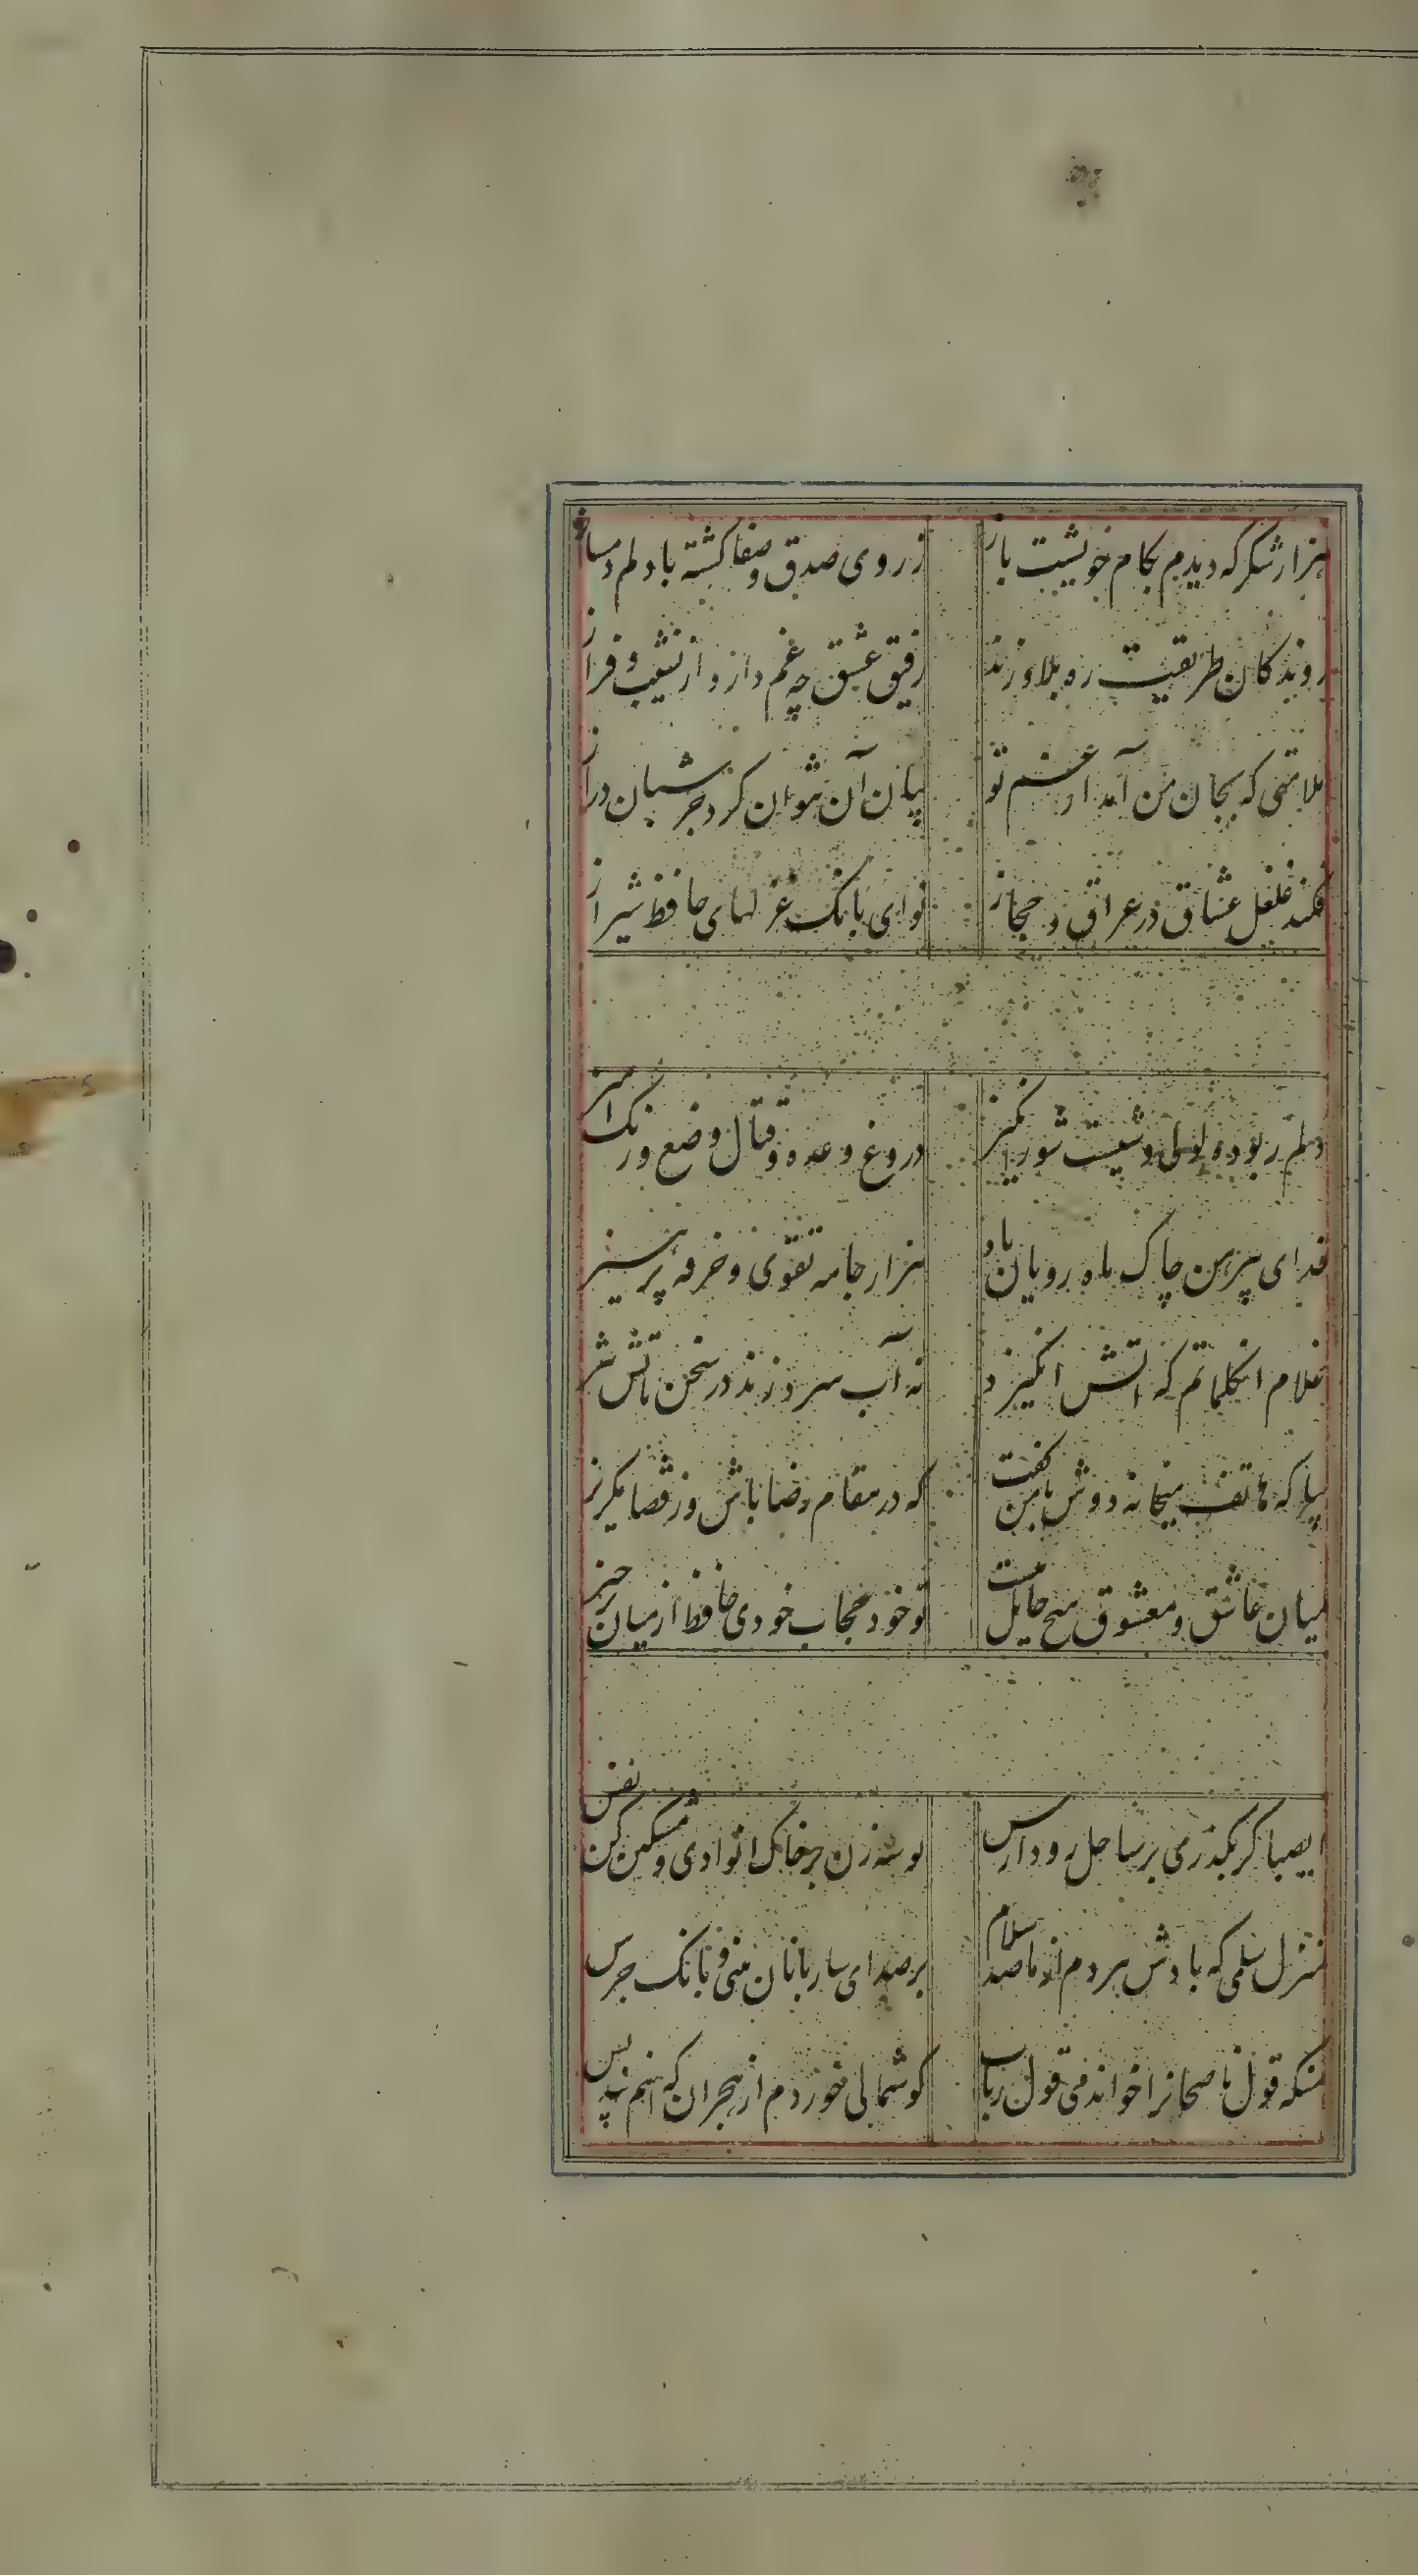 هزار شکر که دیدم بکام خویشت باز
ز روی صدق و صفا کشته با دلم دمساز
روندکان طریقت ره بلا ورزند
رفیق عشق چه غم دارد از نشیب و فراز
ملامتی که بجان من آمد از غم تو
بیان آن نتوان کرد جز شبان دراز
فکند غلغل عشاق در عراق و حجاز
نوای بانک غزلهای حافظ شیراز
دلم ربوده لولی وشیست شورانکیز
دروغ وعده و قتال وضع و رنک امیز
فدای پیرهن چاک ماه رویان باد
هزار جامه تقوی و خرقه پرهیز
غلام انکلماتم که اتش انکیزد
نه آب سرد زند در سخن باتش تیز
بیا که هاتف میخانه دوش بامن کفت
که در مقام رضا باش وز قضا مکریز
میان عاشق و معشوق هیچ حایل نیست
تو خود حجاب خودی حافظ از میان برخیز
ایصبا کر بکذری بر ساحل رود ارس
بوسه زن بر خاک انوادی و مشکین کن نفس
منزل سلمی که بادش هردم از ما صد سلام
پر صدای ساربانان بینی و بانک جرس
منکه قول ناصحانرا خواندمی قول رباب
کوشمالی خوردم از هجران که اینم پند بس